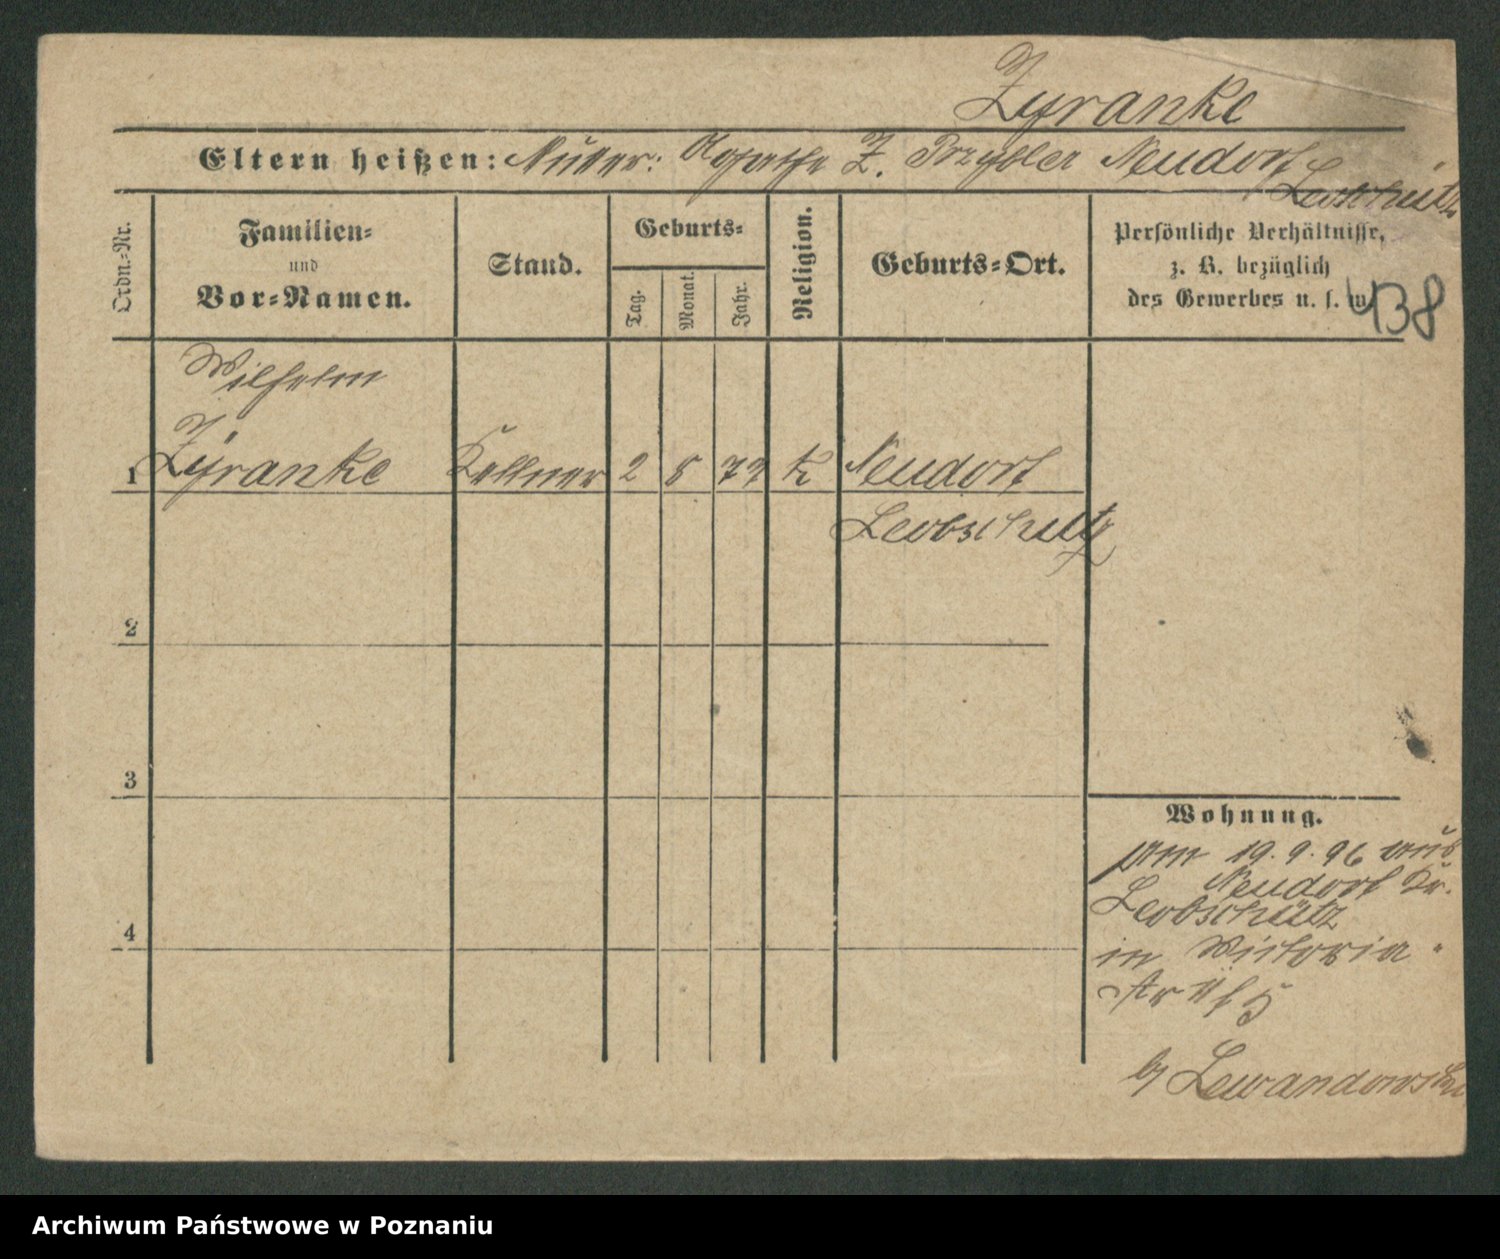 Zyranke
Eltern heißen: Mutter: Agathe Z. Przybler Neudorf
Leobschütz
Ordn.-Nr.
Familien-
und
Vor-Namen.
Stand.
Geburts-
Tag.
Monat.
Jahr.
Religion.
Geburts-Ort.
Persönliche Verhältnisse,
z. B. bezüglich
des Gewerbes u. s. w.
438
Wilhelm
1 Zyranke Kellner 2 8 77 k Neudorf
Leobschutz
2
3
4
Wohnung.
am 19.9.96 aus
Neudorf Kr.
Leobschütz
in Victoria-
str
b/ Lewandowski
Archiwum Państwowe w Poznaniu